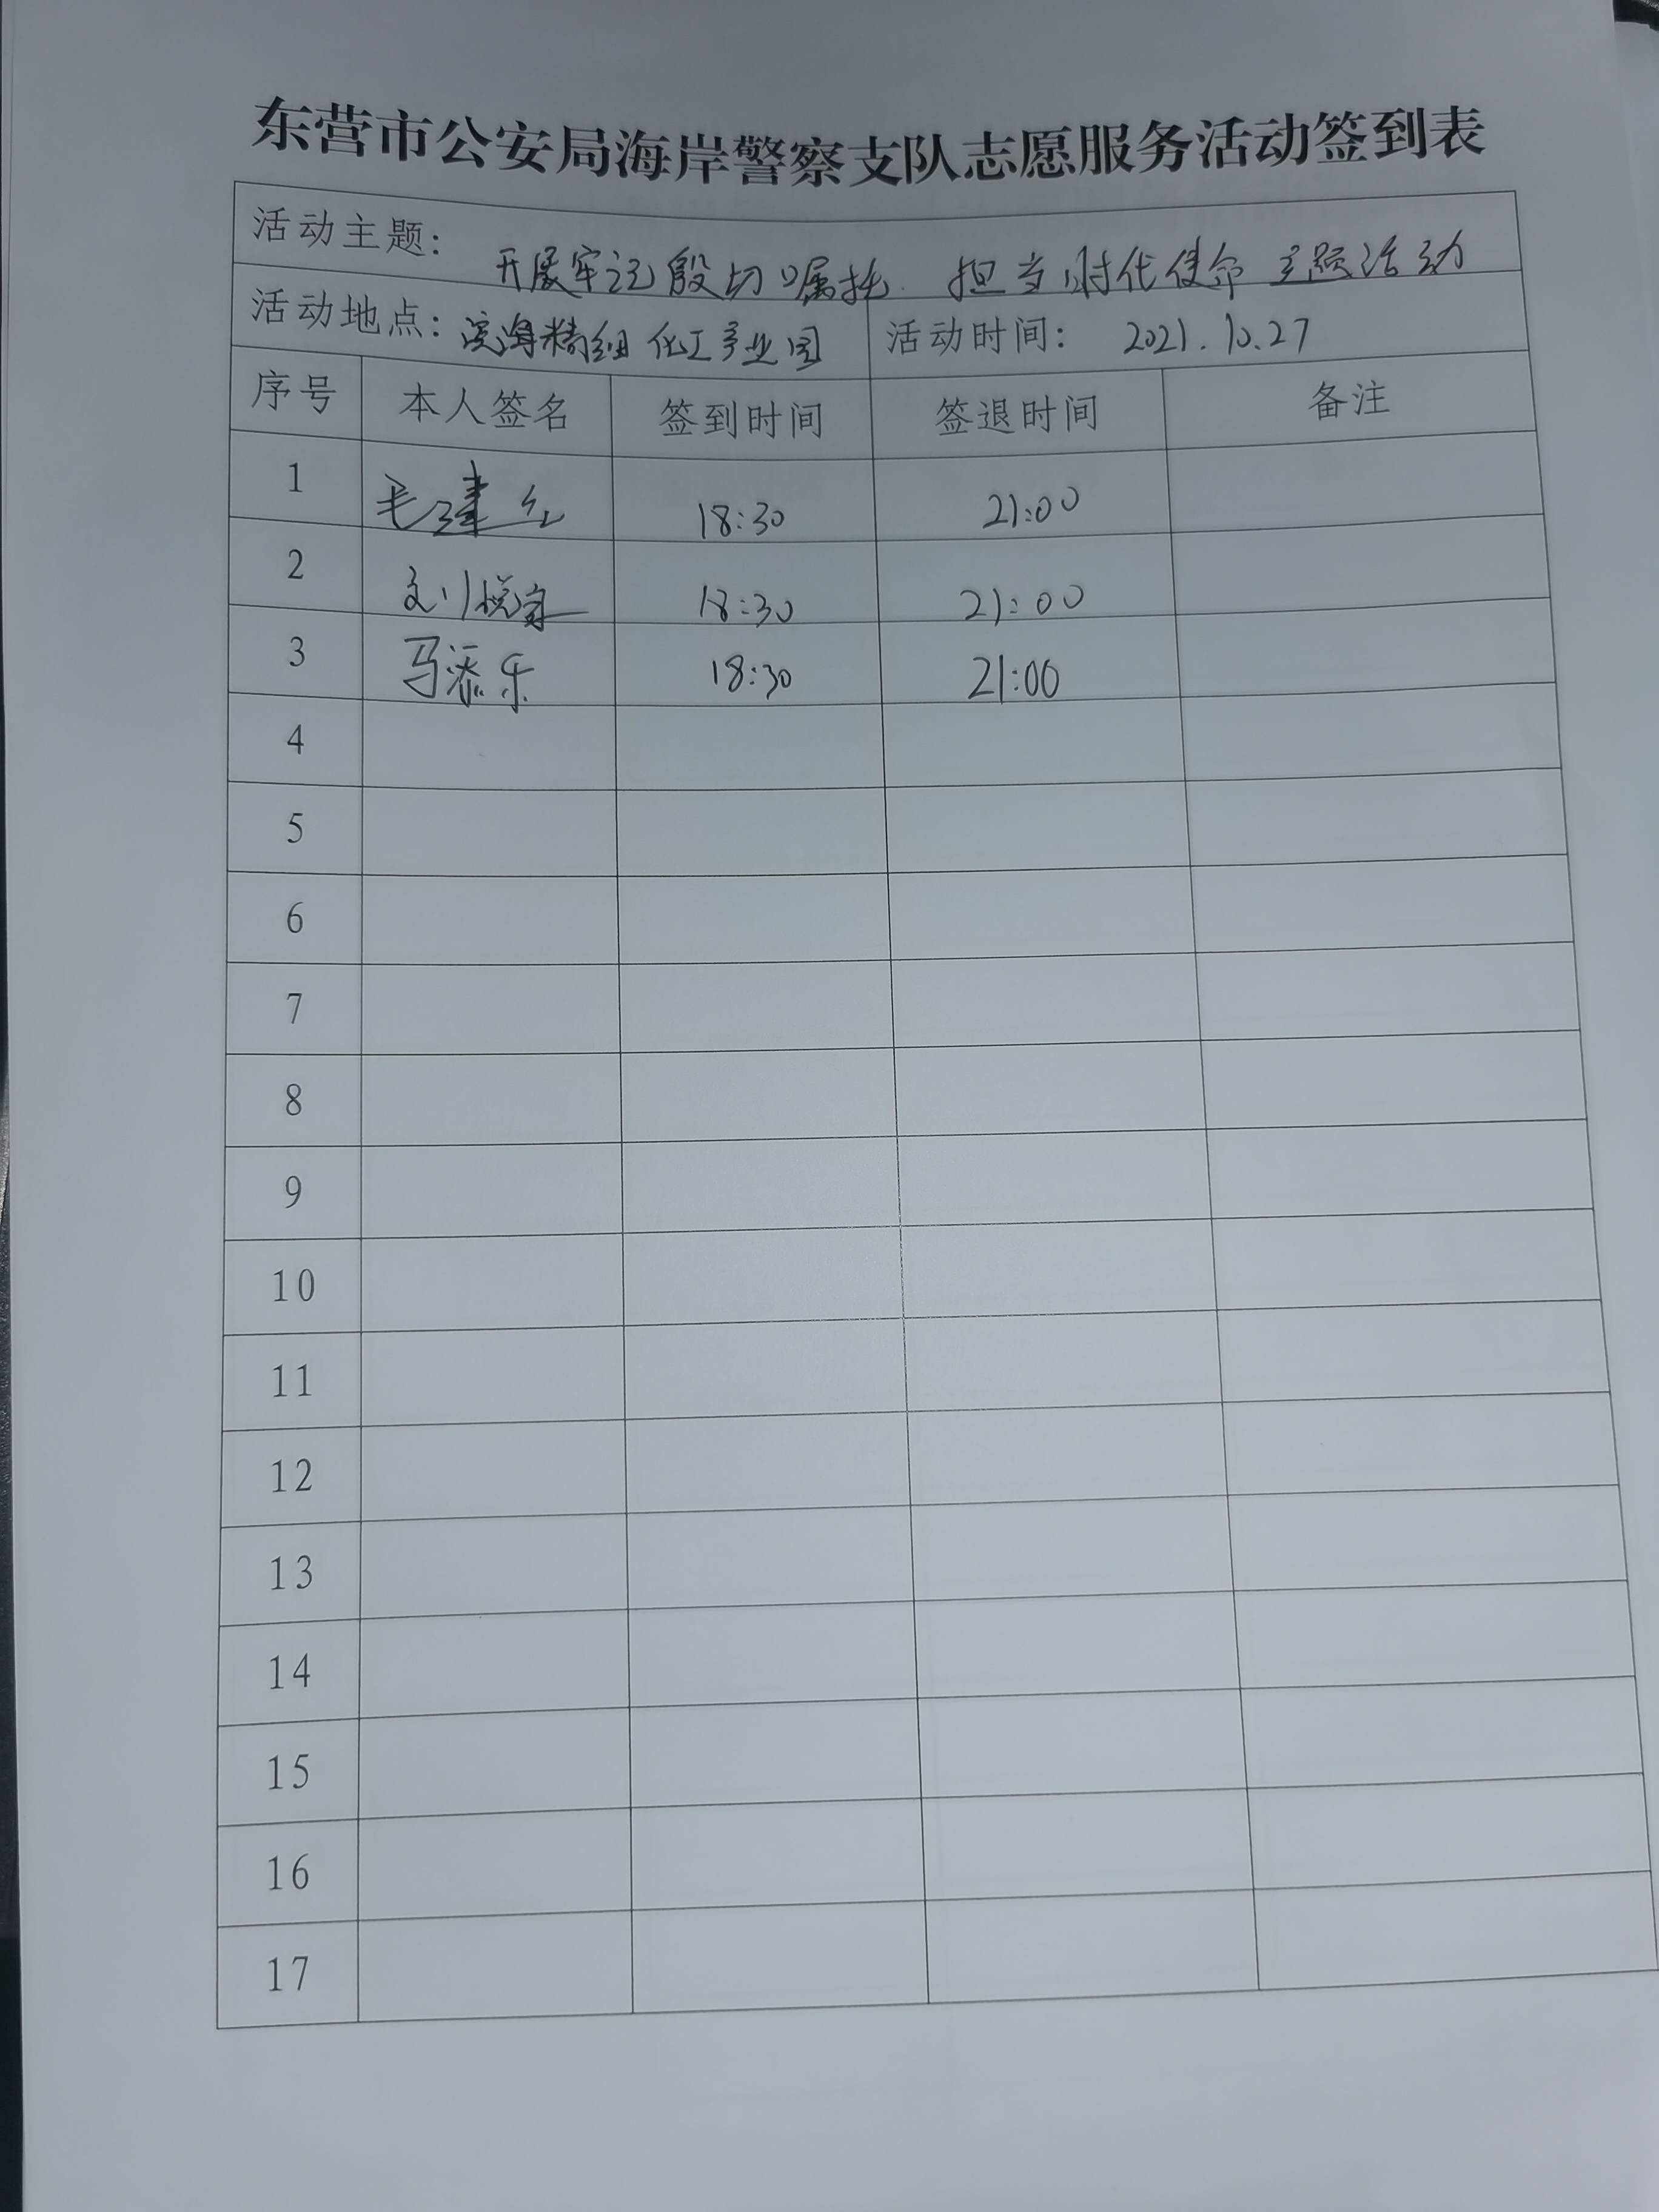 东营市公安局海岸警察支队志愿服务活动签到表
活动主题: 开展牢记殷切嘱托 担当时代使命 主题活动
活动地点: 滨海精细化工产业园 活动时间: 2021.10.27
序号 本人签名 签到时间 签退时间 备注
1 毛建红 18:30 21:00
2 刘悦 18:30 21:00
3 马添乐 18:30 21:00
4
5
6
7
8
9
10
11
12
13
14
15
16
17